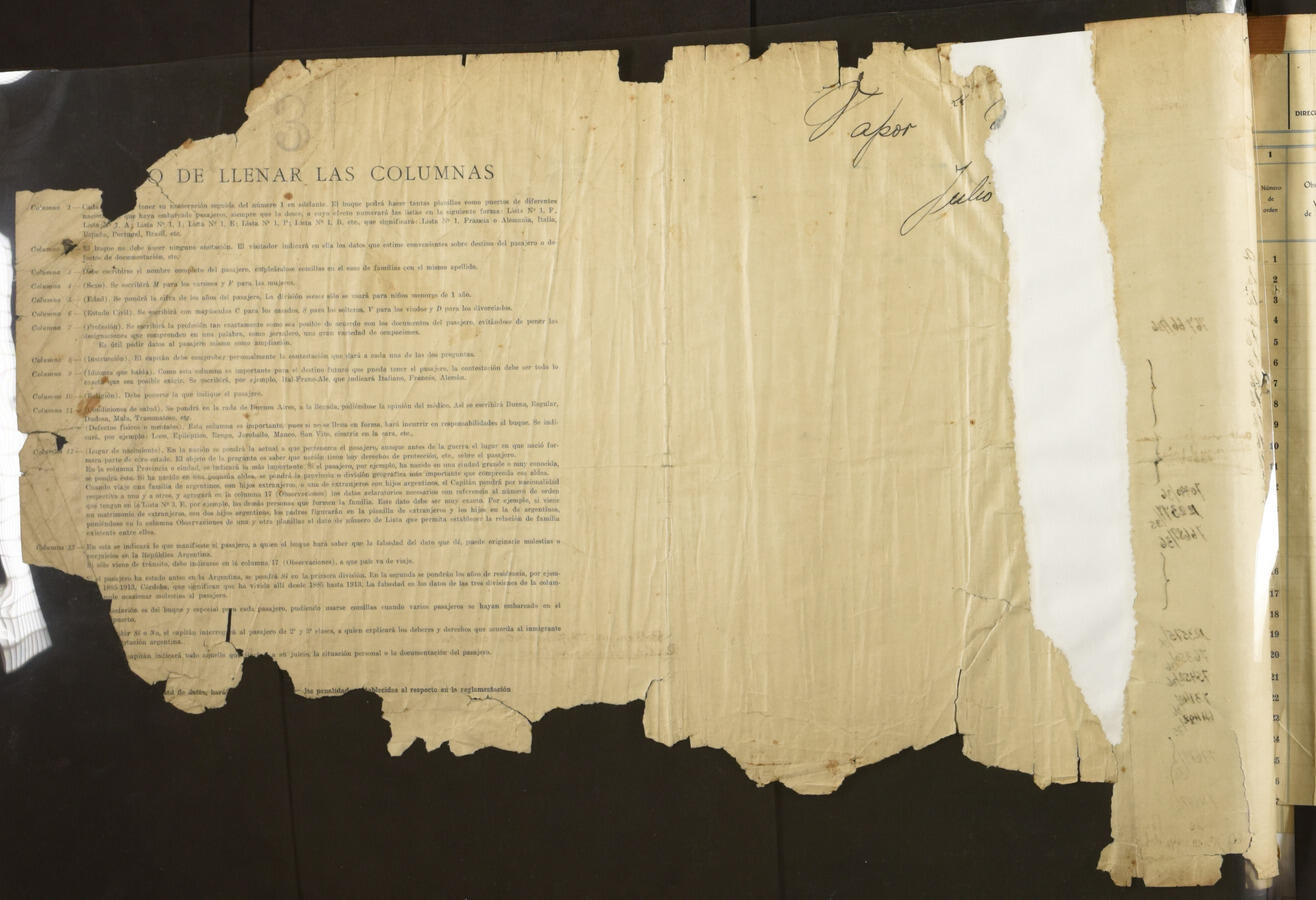 3
O DE LLENAR LAS COLUMNAS
Columna 2 — Cada tener su numeración seguida del número 1 en adelante. El buque podrá hacer tantas planillas como puertos de diferentes
que haya embarcado pasajeros, siempre que lo desee, a cuyo efecto numerará las listas en la siguiente forma: Lista Nº 1, F,
Lista Nº 1, A; Lista Nº 1, I; Lista Nº 1, E; Lista Nº 1, P; Lista Nº 1, B, etc., que significará: Lista Nº 1, Francia o Alemania, Italia,
España, Portugal, Brasil, etc.
Columna El buque no debe hacer ninguna anotación. El visitador indicará en ella los datos que estime convenientes sobre destino del pasajero o de-
fectos de documentación, etc.
Columna Debe escribirse el nombre completo del pasajero, empleándose comillas en el caso de familias con el mismo apellido.
Columna 4 — (Sexo). Se escribirá M para los varones y F para las mujeres.
Columna 5 — (Edad). Se pondrá la cifra de los años del pasajero. La división meses sólo se usará para niños menores de 1 año.
Columna 6 — (Estado Civil). Se escribirá con mayúsculas C para los casados, S para los solteros, V para los viudos y D para los divorciados.
Columna 7 — (Profesión). Se escribirá la profesión tan exactamente como sea posible de acuerdo con los documentos del pasajero, evitándose de poner las
designaciones que comprenden en una palabra, como jornalero, una gran variedad de ocupaciones.
Es útil pedir datos al pasajero mismo como ampliación.
Columna 8 — (Instrucción). El capitán debe comprobar personalmente la contestación que dará a cada una de las dos preguntas.
Columna 9 — (Idioma que habla). Como esta columna es importante para el destino futuro que pueda tener el pasajero, la contestación debe ser todo lo
exacta que sea posible exigir. Se escribirá, por ejemplo, Ital-Franc-Ale, que indicará Italiano, Francés, Alemán.
Columna 10 — (Religión). Debe ponerse la que indique el pasajero.
Columna 11 — (Condiciones de salud). Se pondrá en la rada de Buenos Aires, a la llegada, pidiéndose la opinión del médico. Así se escribirá Buena, Regular,
Dudosa, Mala, Traumatoso, etc.
(Defectos físicos o mentales). Esta columna es importante, pues si no se llena en forma, hará incurrir en responsabilidades al buque. Se indi-
cará, por ejemplo: Loco, Epiléptico, Rengo, Jorobado, Manco, San Vito, cicatriz en la cara, etc.
Columna 12 — (Lugar de nacimiento). En la nación se pondrá la actual a que pertenezca el pasajero, aunque antes de la guerra el lugar en que nació for-
mara parte de otro estado. El objeto de la pregunta es saber que nación tiene hoy derechos de protección, etc., sobre el pasajero.
En la columna Provincia o ciudad, se indicará la más importante. Si el pasajero, por ejemplo, ha nacido en una ciudad grande o muy conocida,
se pondrá ésta. Si ha nacido en una pequeña aldea, se pondrá la provincia o división geográfica más importante que comprenda esa aldea.
Cuando viaje una familia de argentinos, con hijos extranjeros, o una de extranjeros con hijos argentinos, el Capitán pondrá por nacionalidad
respectiva a una y a otros, y agregará en la columna 17 (Observaciones) los datos aclaratorios necesarios con referencia al número de orden
que tengan en la Lista Nº 3, E, por ejemplo, las demás personas que formen la familia. Este dato debe ser muy exacto. Por ejemplo, si viene
un matrimonio de extranjeros, con dos hijos argentinos, los padres figurarán en la planilla de extranjeros y los hijos en la de argentinos,
poniéndose en la columna Observaciones de una y otra planillas el dato de número de Lista que permita establecer la relación de familia
existente entre ellos.
Columna 13 — En esta se indicará lo que manifieste el pasajero, a quien el buque hará saber que la falsedad del dato que dé, puede originarle molestias o
perjuicios en la República Argentina.
Si sólo viene de tránsito, debe indicarse en la columna 17 (Observaciones), a que país va de viaje.
el pasajero ha estado antes en la Argentina, se pondrá Sí en la primera división. En la segunda se pondrán los años de residencia, por ejem-
1885-1913, Córdoba, que significan que ha vivido allí desde 1885 hasta 1913. La falsedad en los datos de las tres divisiones de la colum-
ocasionar molestias al pasajero.
es del buque y especial para cada pasajero, pudiendo usarse comillas cuando varios pasajeros se hayan embarcado en el
puerto.
Sí o No, el capitán interrogará al pasajero de 2ª y 3ª clases, a quien explicará los deberes y derechos que acuerda al inmigrante
argentina.
capitán indicará todo aquello que a su juicio, la situación personal o la documentación del pasajero.
de datos, hará las penalidades establecidas al respecto en la reglamentación
Vapor
Julio
DIREC
1
Número
de
orden
1
2
3
4
5
6
7
8
9
10
11
16
17
18
19
20
21
22
23